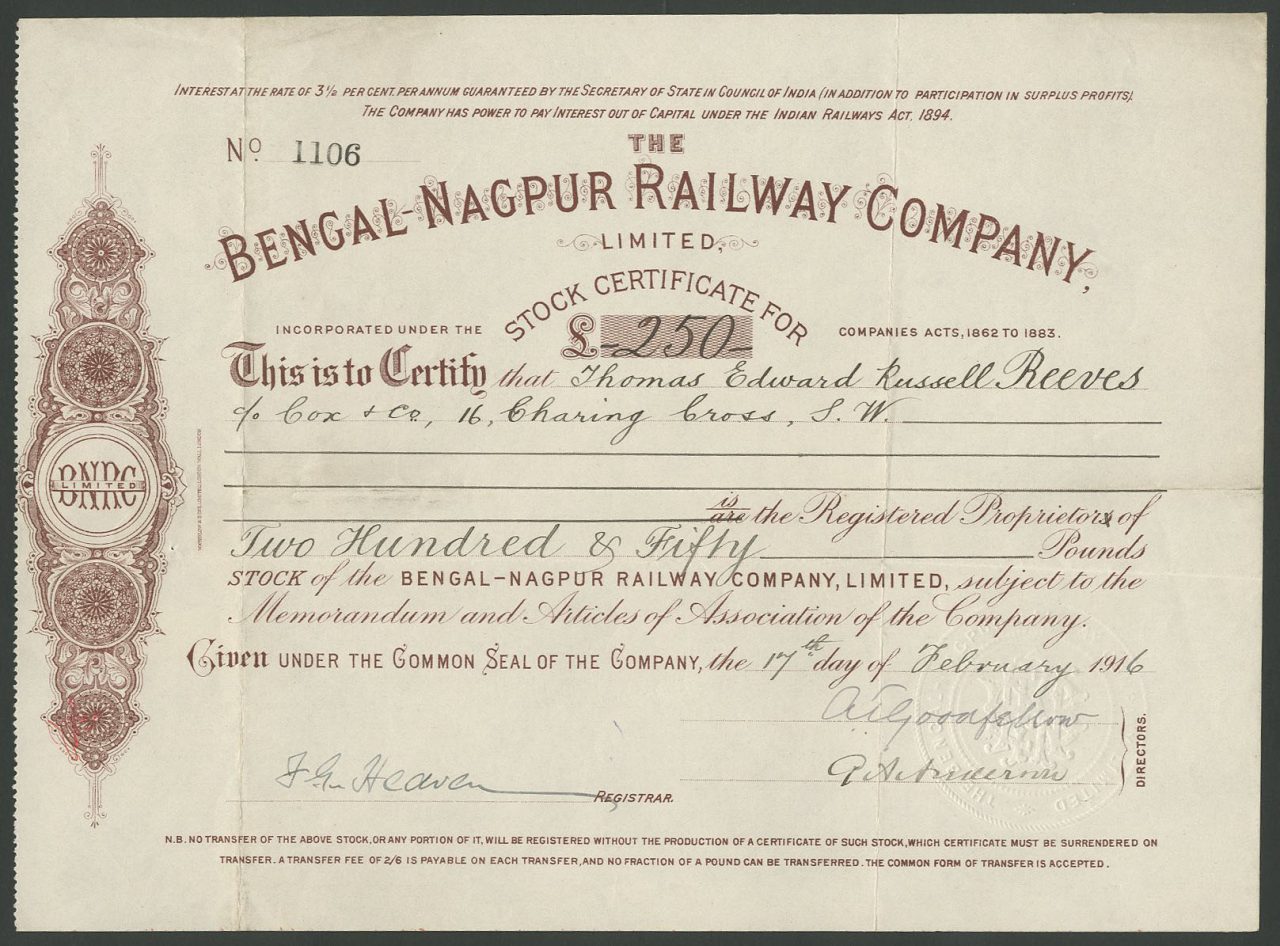 INTEREST AT THE RATE OF 3½ PER CENT. PER ANNUM GUARANTEED BY THE SECRETARY OF STATE IN COUNCIL OF INDIA (IN ADDITION TO PARTICIPATION IN SURPLUS PROFITS).
THE COMPANY HAS POWER TO PAY INTEREST OUT OF CAPITAL UNDER THE INDIAN RAILWAYS ACT, 1894.
No. 1106
THE
BENGAL-NAGPUR RAILWAY COMPANY,
LIMITED,
STOCK CERTIFICATE FOR
£-250-
INCORPORATED UNDER THE COMPANIES ACTS, 1862 TO 1883.
This is to Certify that Thomas Edward Russell Reeves
c/o Cox & Co., 16, Charing Cross, S. W.
is
are the Registered Proprietors of
Two Hundred & Fifty Pounds
STOCK of the BENGAL-NAGPUR RAILWAY COMPANY, LIMITED, subject to the
Memorandum and Articles of Association of the Company.
Given UNDER THE COMMON SEAL OF THE COMPANY, the 17th day of February 1916
A. Goodfellow
G A Anderson
DIRECTORS.
F. G. Heaven
REGISTRAR.
N.B. NO TRANSFER OF THE ABOVE STOCK, OR ANY PORTION OF IT, WILL BE REGISTERED WITHOUT THE PRODUCTION OF A CERTIFICATE OF SUCH STOCK, WHICH CERTIFICATE MUST BE SURRENDERED ON
TRANSFER. A TRANSFER FEE OF 2/6 IS PAYABLE ON EACH TRANSFER, AND NO FRACTION OF A POUND CAN BE TRANSFERRED. THE COMMON FORM OF TRANSFER IS ACCEPTED.
BNRC
LIMITED